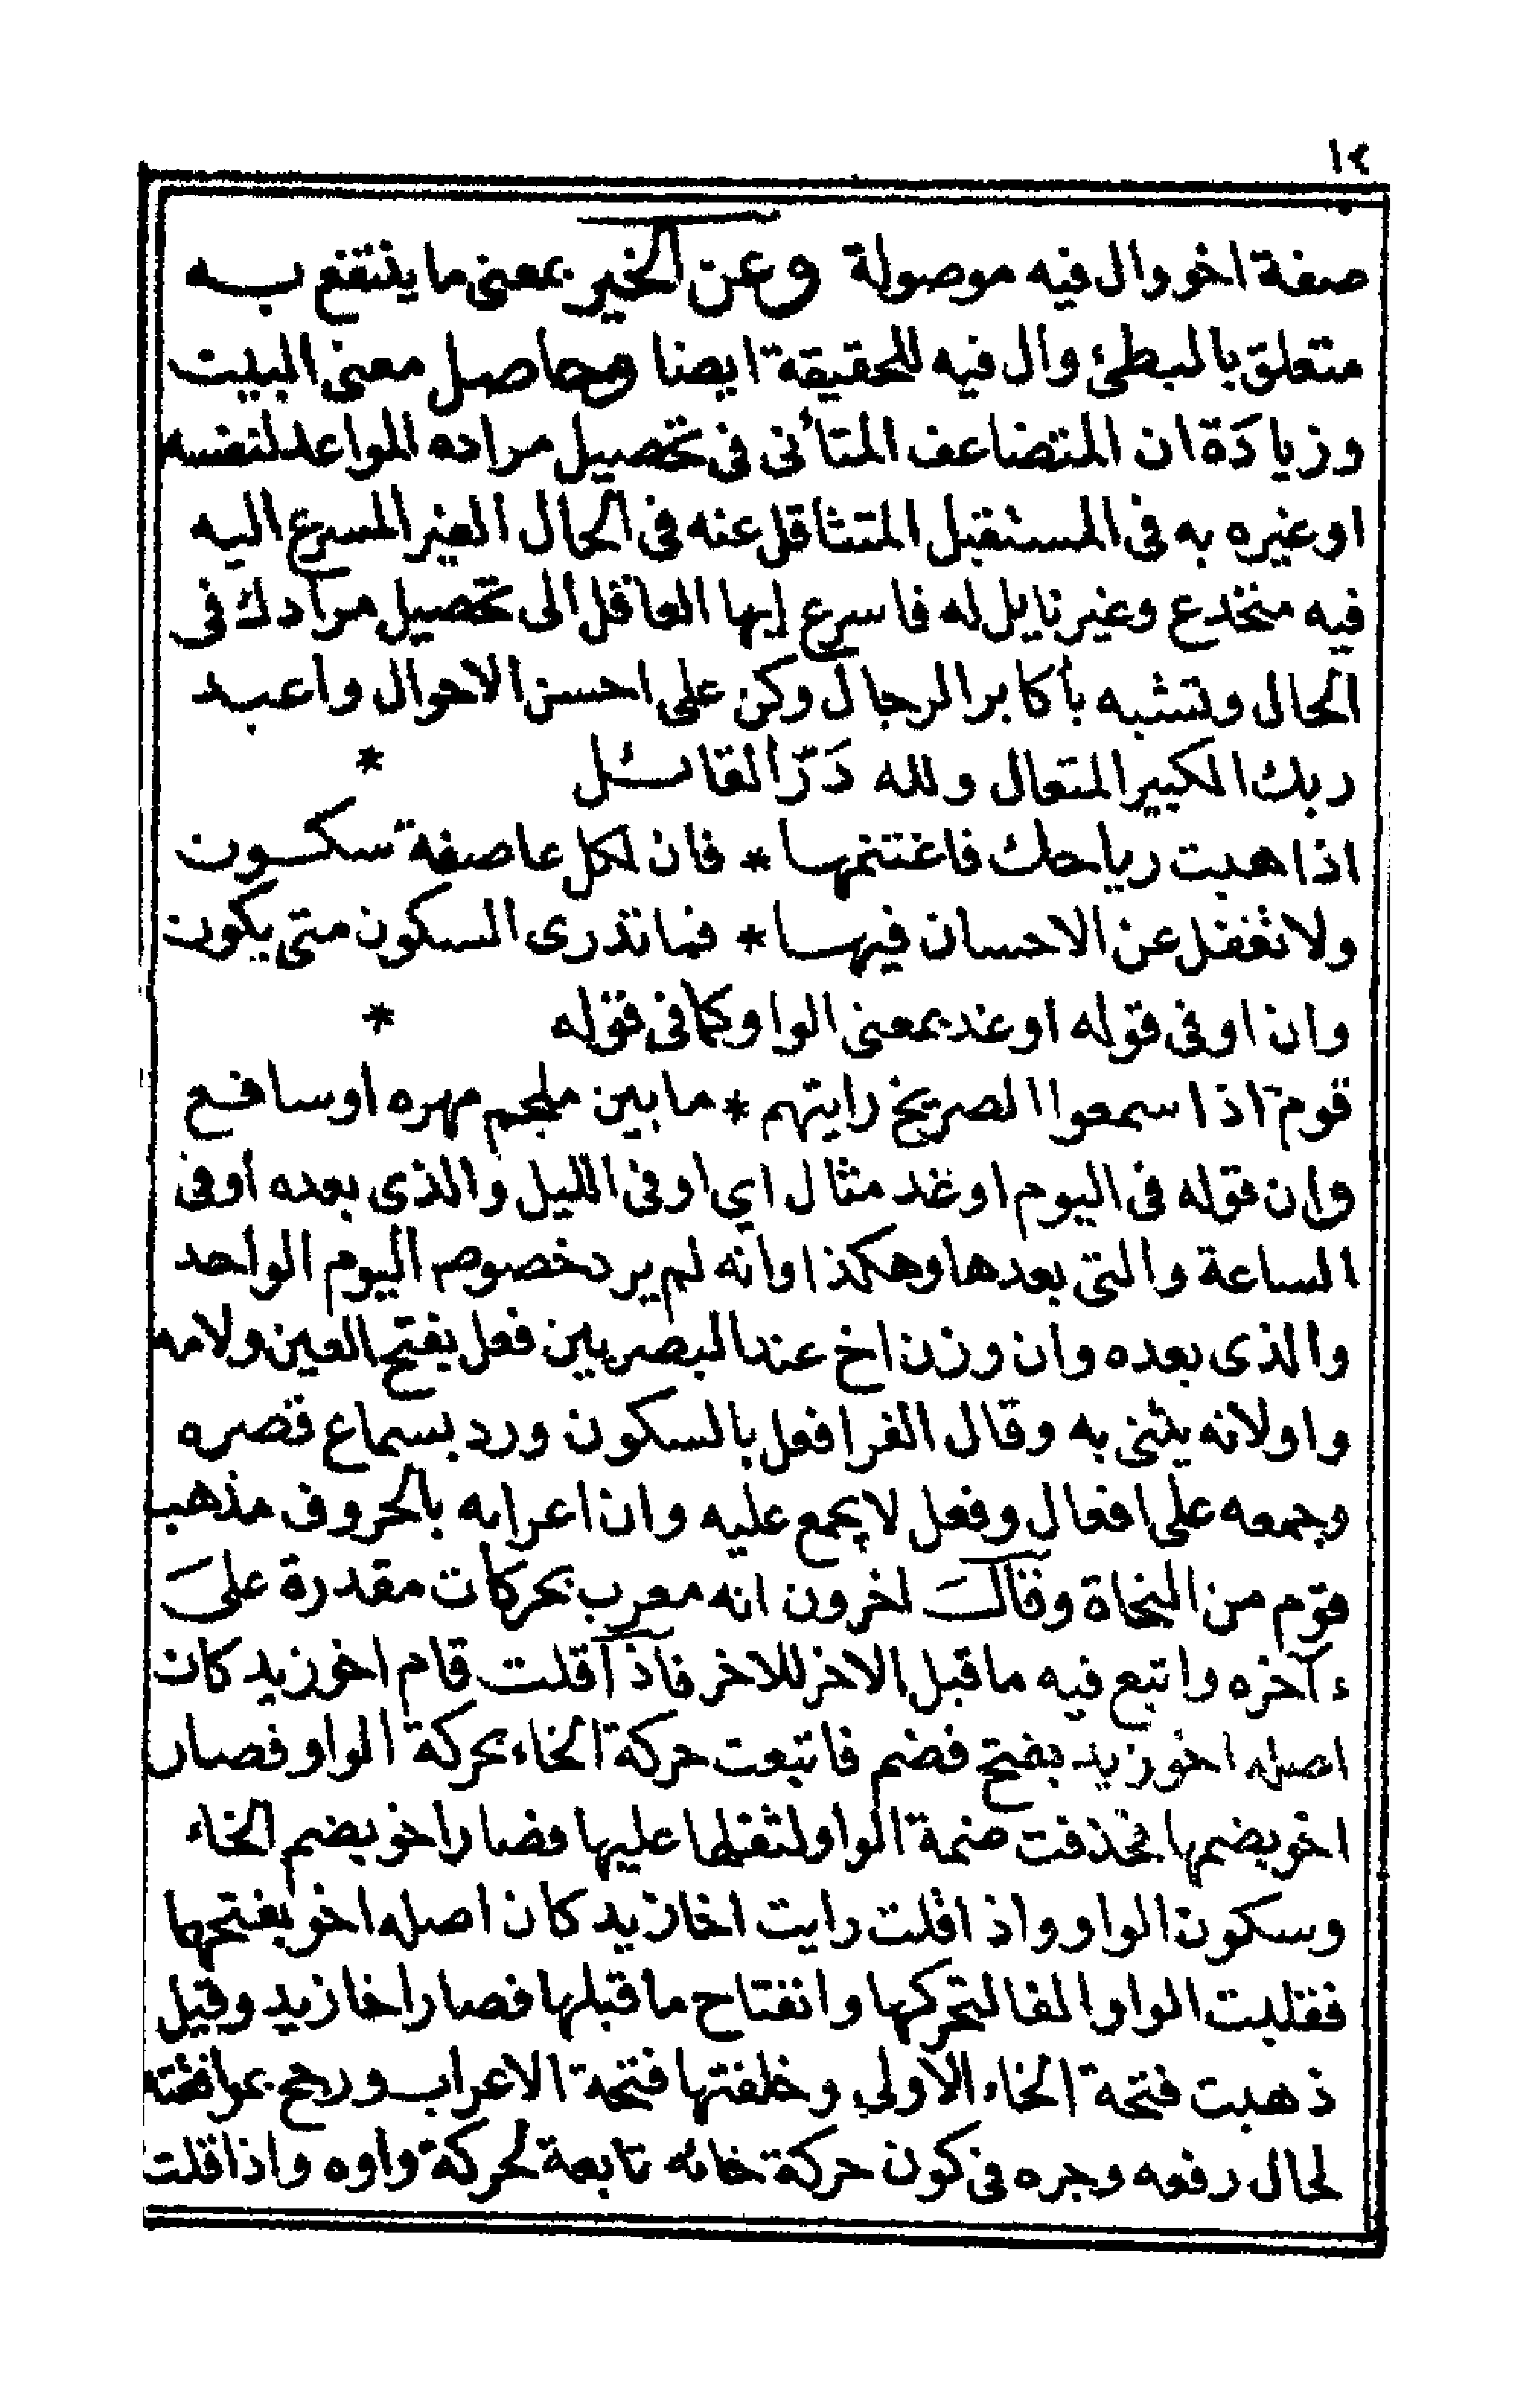 ١٢
صفة اخو وال فيه موصولة وعن الخير بمعنى ما ينتفع به
متعلق بالبطئ وال فيه للحقيقة ايضا وحاصل معنى البيت
وزيادَة ان المتضاعف المتأنى فى تحصيل مراده المواعد لنفسه
او غيره به فى المستقبل المتثاقل عنه فى الحال الغير المسرع اليه
فيه منخدع وغير نايل له فاسرع إيها العاقل الى تحصيل مرادك فى
الحال وتشبه بأكابر الرجال وكن على احسن الاحوال واعبد
ربك الكبير المتعال ولله دَرّ القائل *
اذا هبت رياحك فاغتنمها * فان لكل عاصفة سكون
ولا تغفل عن الاحسان فيها * فما تدرى السكون متى يكون
وان او فى قوله او غد بمعنى الواو كما فى قوله *
قوم اذا سمعوا الصريخ رايتهم * ما بين ملجم مهره او سافع
وان قوله فى اليوم او غد مثال اي او فى الليل والذى بعده او فى
الساعة والتى بعدها وهكذا وانه لم يرد خصوص اليوم الواحد
والذى بعده وان وزن اخ عند البصريين فعل بفتح العين ولامه
واو لانه يثنى به وقال الفرا فعل بالسكون ورد بسماع قصره
وجمعه على افعال وفعل لا يجمع عليه وان اعرابه بالحروف مذهب
قوم من النحاة وقال اخرون انه معرب بحركات مقدرة على
ءآخره واتبع فيه ما قبل الاخر للاخر فاذا قلت قام اخو زيد كان
اصله اخو زيد بفتح فضم فاتبعت حركة الخاء بحركة الواو فصار
اخو بضمها فحذفت ضمة الواو لثقلها عليها فصار اخو بضم الخاء
وسكون الواو واذا قلت رايت اخا زيد كان اصله اخو بفتحها
فقلبت الواو الفا لتحركها وانفتاح ما قبلها فصار اخا زيد وقيل
ذهبت فتحة الخاء الاولي وخلفتها فتحة الاعراب ورجح بموافقته
لحال رفعه وجره فى كون حركة خائه تابعة لحركة واوه واذا قلت